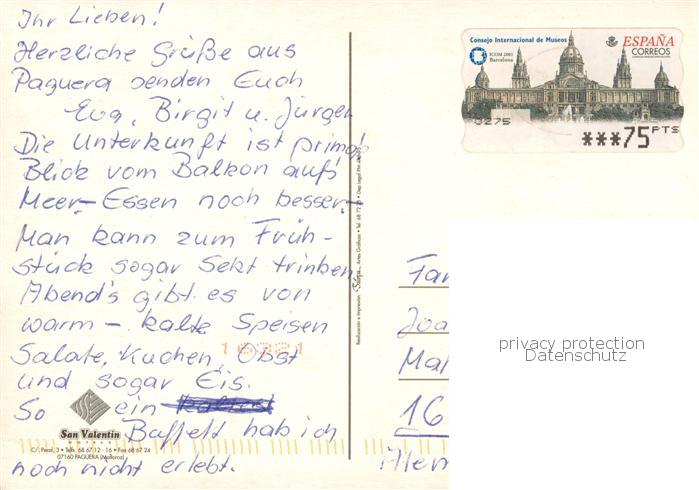 Ihr Lieben!
Herzliche Grüße aus
Paguera senden Euch
Eva, Birgit u. Jürgen
Die Unterkunft ist prima,
Blick vom Balkon auf's
Meer - Essen noch besser -
Man kann zum Früh-
stück sogar Sekt trinken,
Abend's gibt es von
warm - kalte Speisen
Salate, Kuchen, Obst
und sogar Eis.
So ein
Buffett hab ich
noch nicht erlebt.
San Valentin
C/. Peral, 3 • Tels. 68 67 12 - 16 • Fax 68 67 24
07160 PAGUERA (Mallorca)
Consejo Internacional de Museos
ICOM 2001
Barcelona
ESPAÑA
CORREOS
0275
***75 PTS
Fam
Joa
Mal
16
Alem
privacy protection
Datenschutz